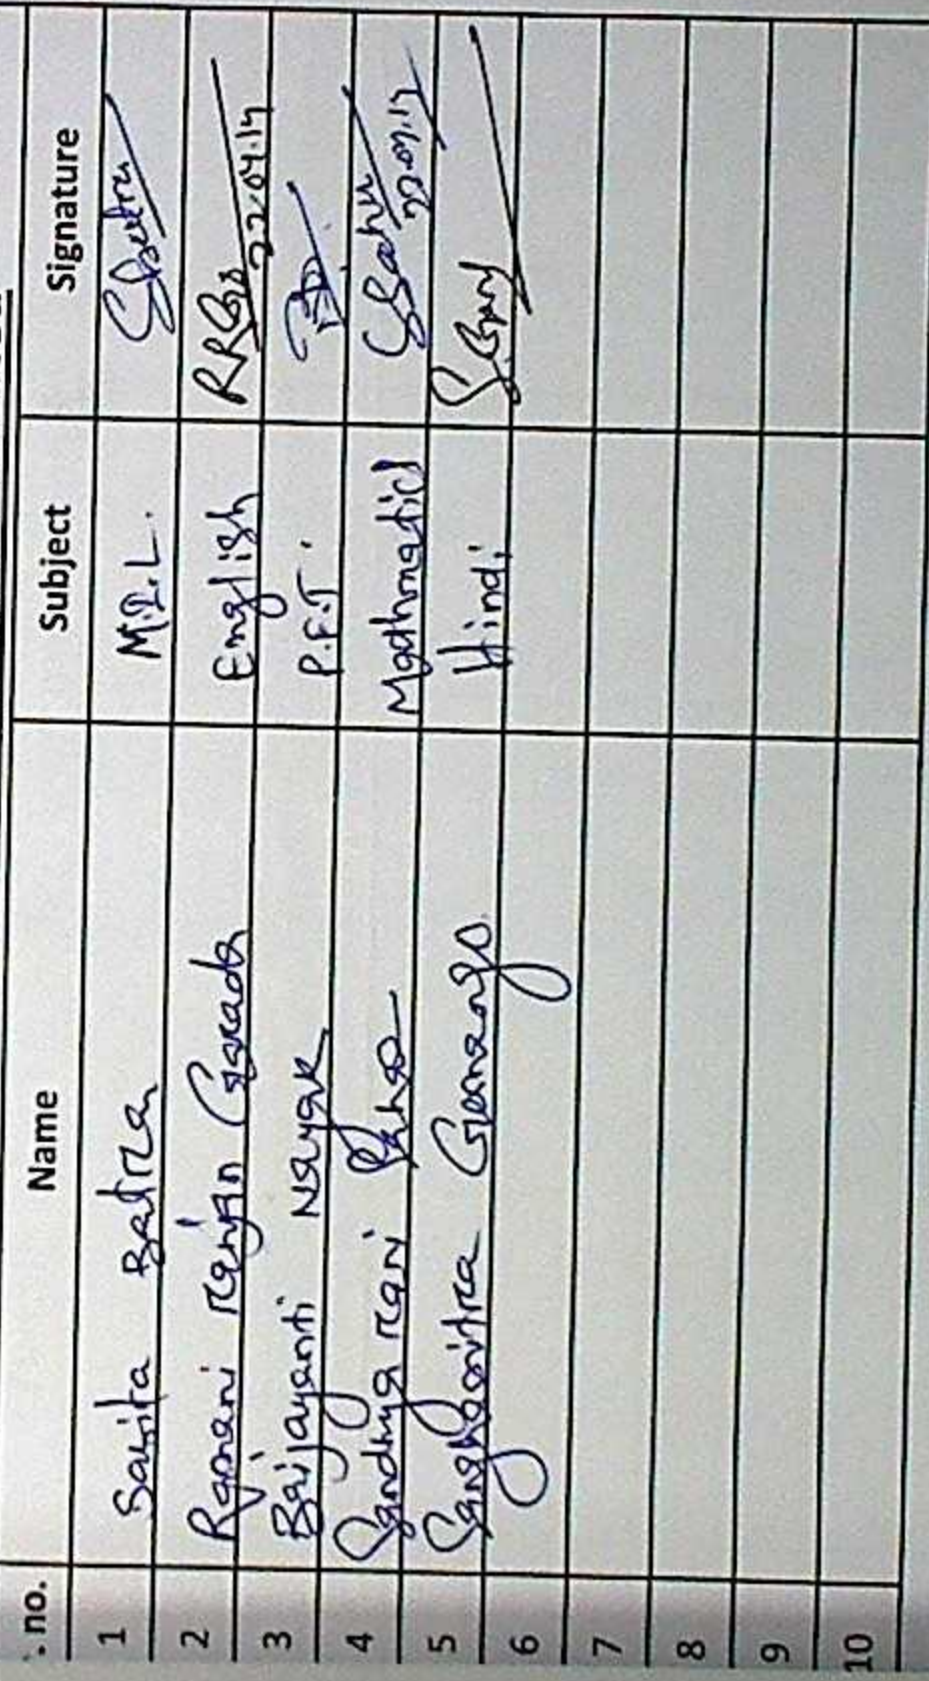 . no. Name Subject Signature
1 Savita Batra M.I.L. SBatra
2 Rajani ranjan Garada English 22.04.17
3 Baijayanti Nayak P.E.T.
4 Sandhya rani Sahoo Mathmatics SSahu 22.04.17
5 Sanghamitra Gamango Hindi
6
7
8
9
10